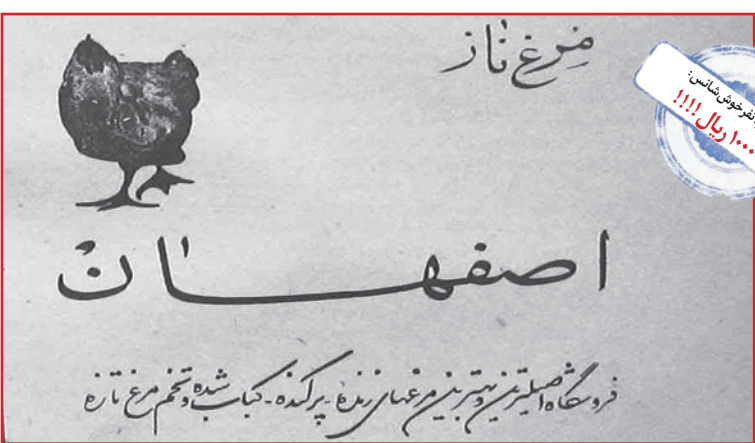 مرغ ناز
نفر خوش شانس:
۱۰۰۰ ریال !!!!
اصفهان
فروشگاه اصیلترین و بهترین مرغهای زنده - پرکنده - کباب شده و تخم مرغ تازه